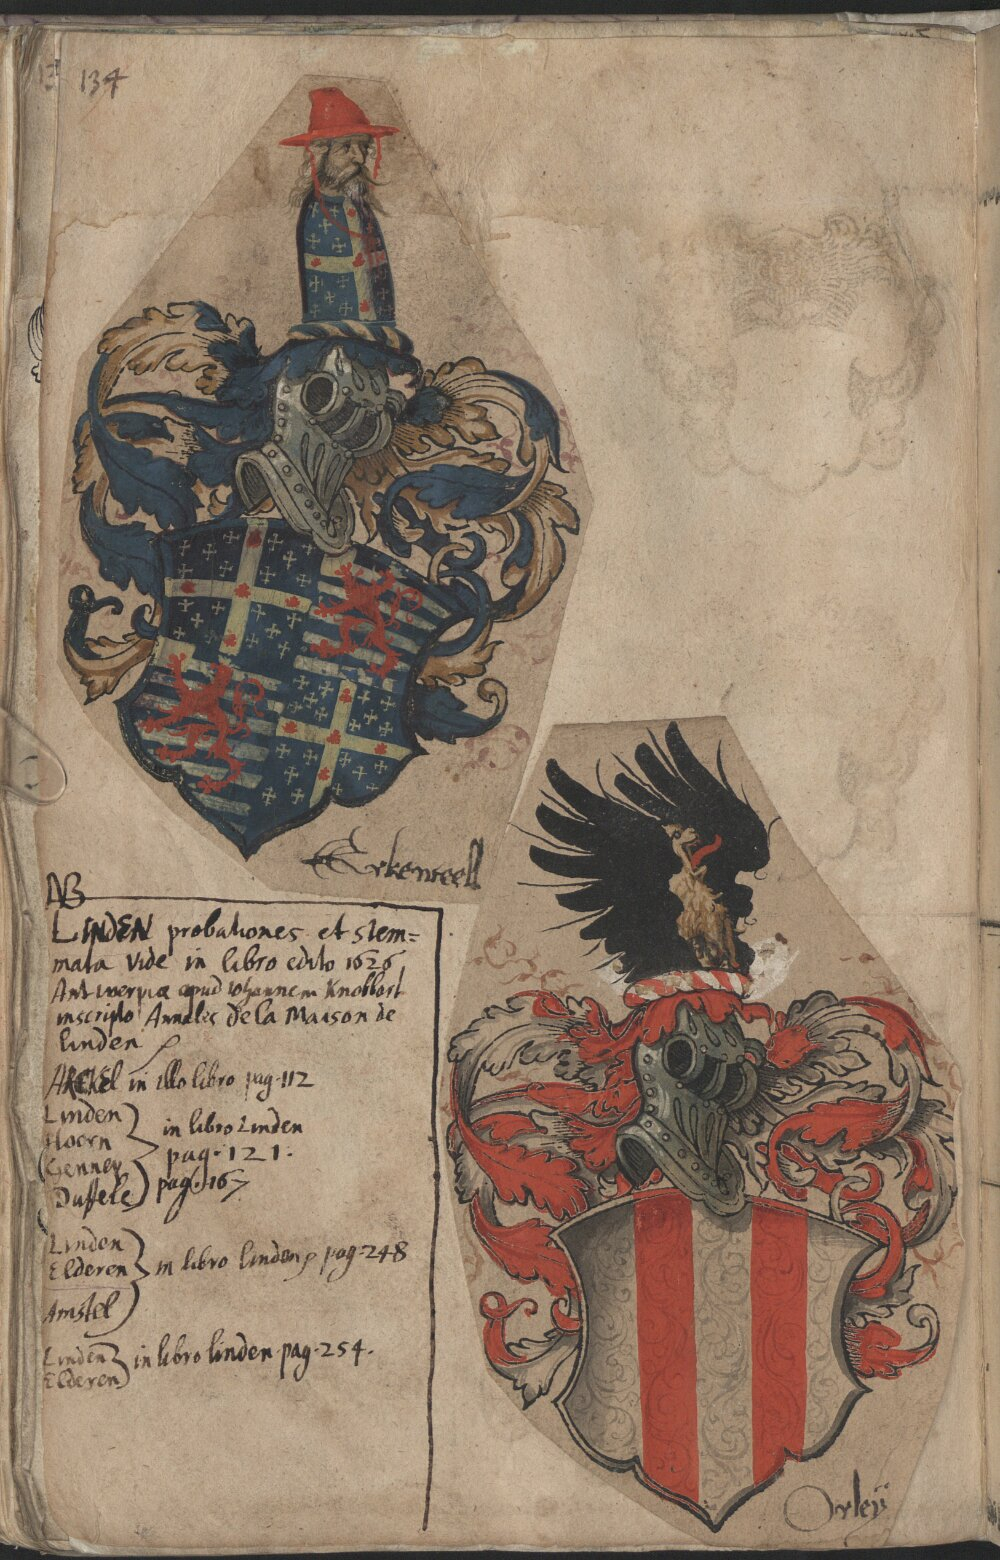 134
Erkenteell
NB
LINDEN probationes et stem=
mata vide in libro edito 1626
Antwerpiæ apud Iohannem Knobbart
inscripto Annales de la Maison de
linden
ARCKEL in illo libro pag. 112
Linden
Hoern
in libro Linden
pag. 121.
Genney
Duffele
pag. 167
Linden
Elderen
in libro linden pag. 248
Amstel
Linden
Elderen
in libro linden pag. 254.
Orleÿ